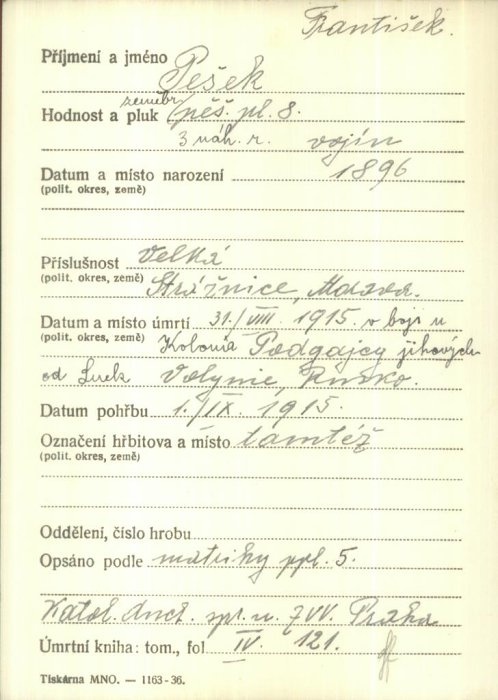 František.
Příjmení a jméno Pešek
zeměbr.
Hodnost a pluk pěš. pl. 8.
3 náh. r. vojín
Datum a místo narození 1896
(polit. okres, země)
Příslušnost Velká
(polit. okres, země) Strážnice, Morava.
Datum a místo úmrtí 31./VIII. 1915. v boji u
(polit. okres, země) Kolonia Podgajcy jihových.
od Luck Volynie, Rusko.
Datum pohřbu 1./IX. 1915.
Označení hřbitova a místo tamtéž
(polit. okres, země)
Oddělení, číslo hrobu
Opsáno podle matriky ppl. 5.
Katol. duch. spr. u. ZVV. Praha
Úmrtní kniha: tom., fol IV. 121.
Tiskárna MNO. — 1163-36.